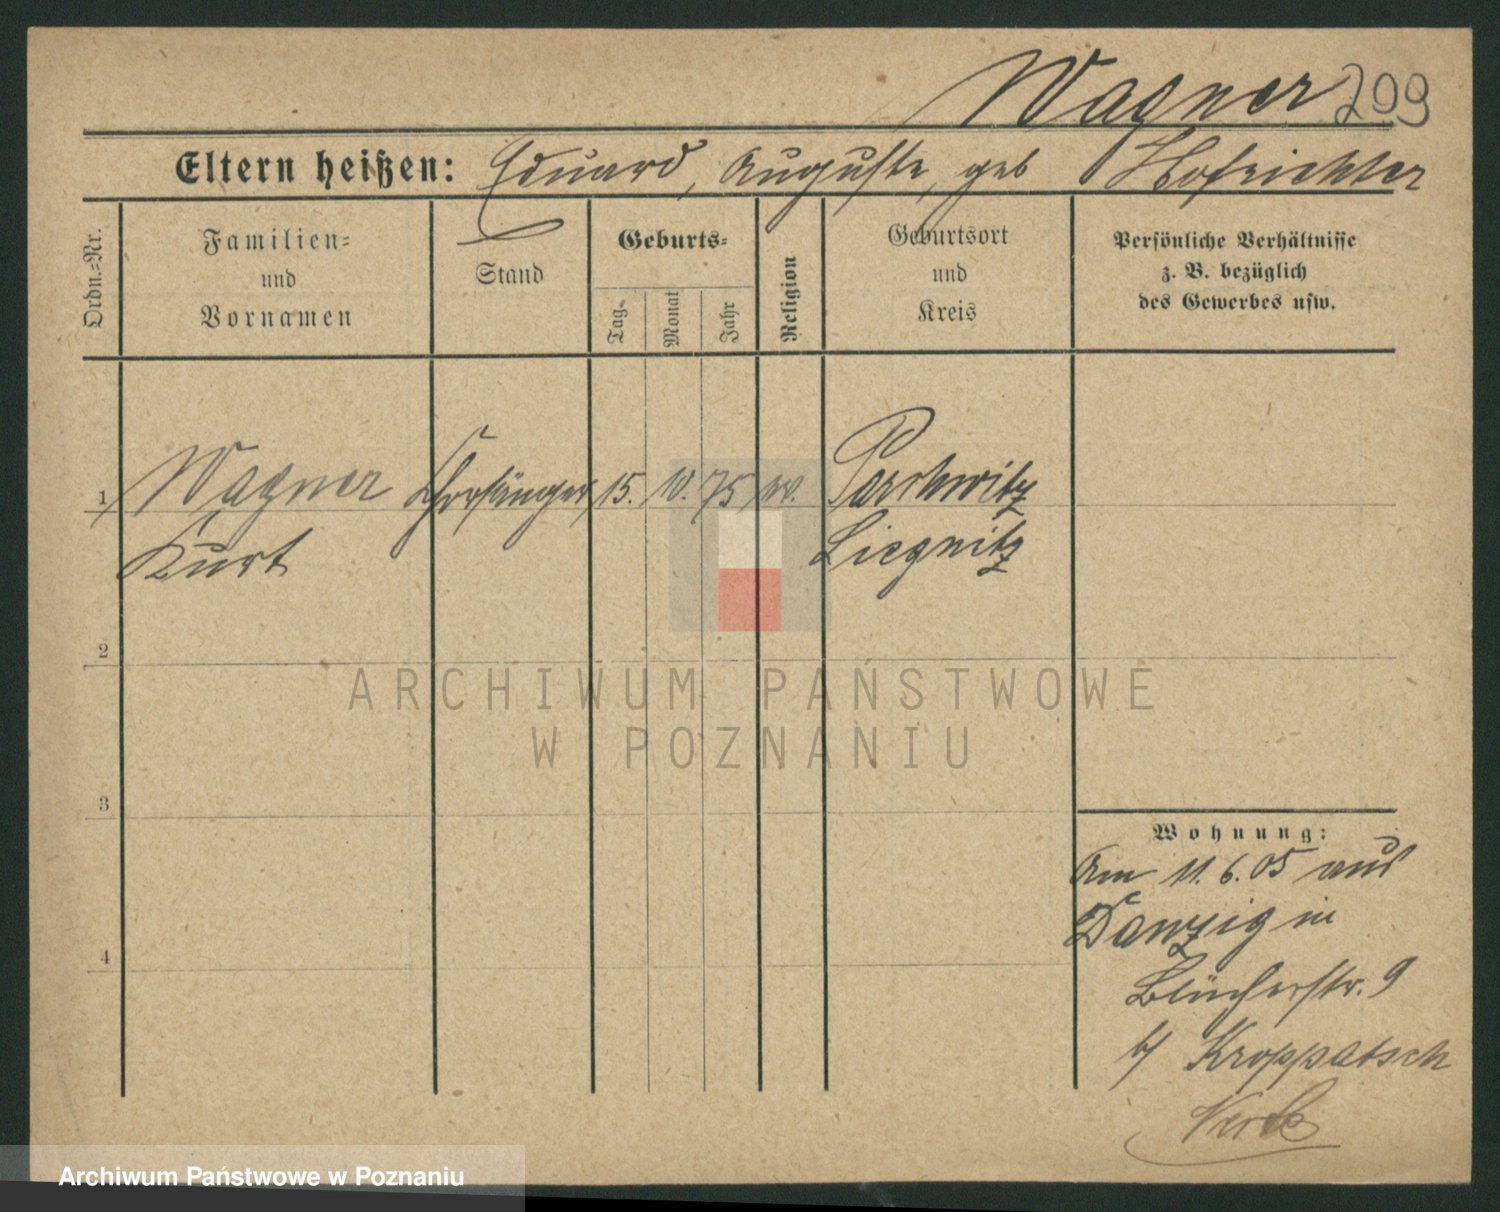 Wagner 299
Eltern heißen: Eduard, Auguste, geb Hofrichter
Ordn.=Nr.
Familien=
und
Vornamen
Stand
Geburts=
Tag
Monat
Jahr
Religion
Geburtsort
und
Kreis
Persönliche Verhältnisse
z. B. bezüglich
des Gewerbes usw.
1 Wagner Chorsänger 15. 10. 75 ev. Parchwitz
Kurt Liegnitz
2
3
4
Wohnung:
Am 11.6.05 aus
Danzig in
Blücherstr. 9
b/ Kroppatsch
ARCHIWUM PAŃSTWOWE
W POZNANIU
Archiwum Państwowe w Poznaniu